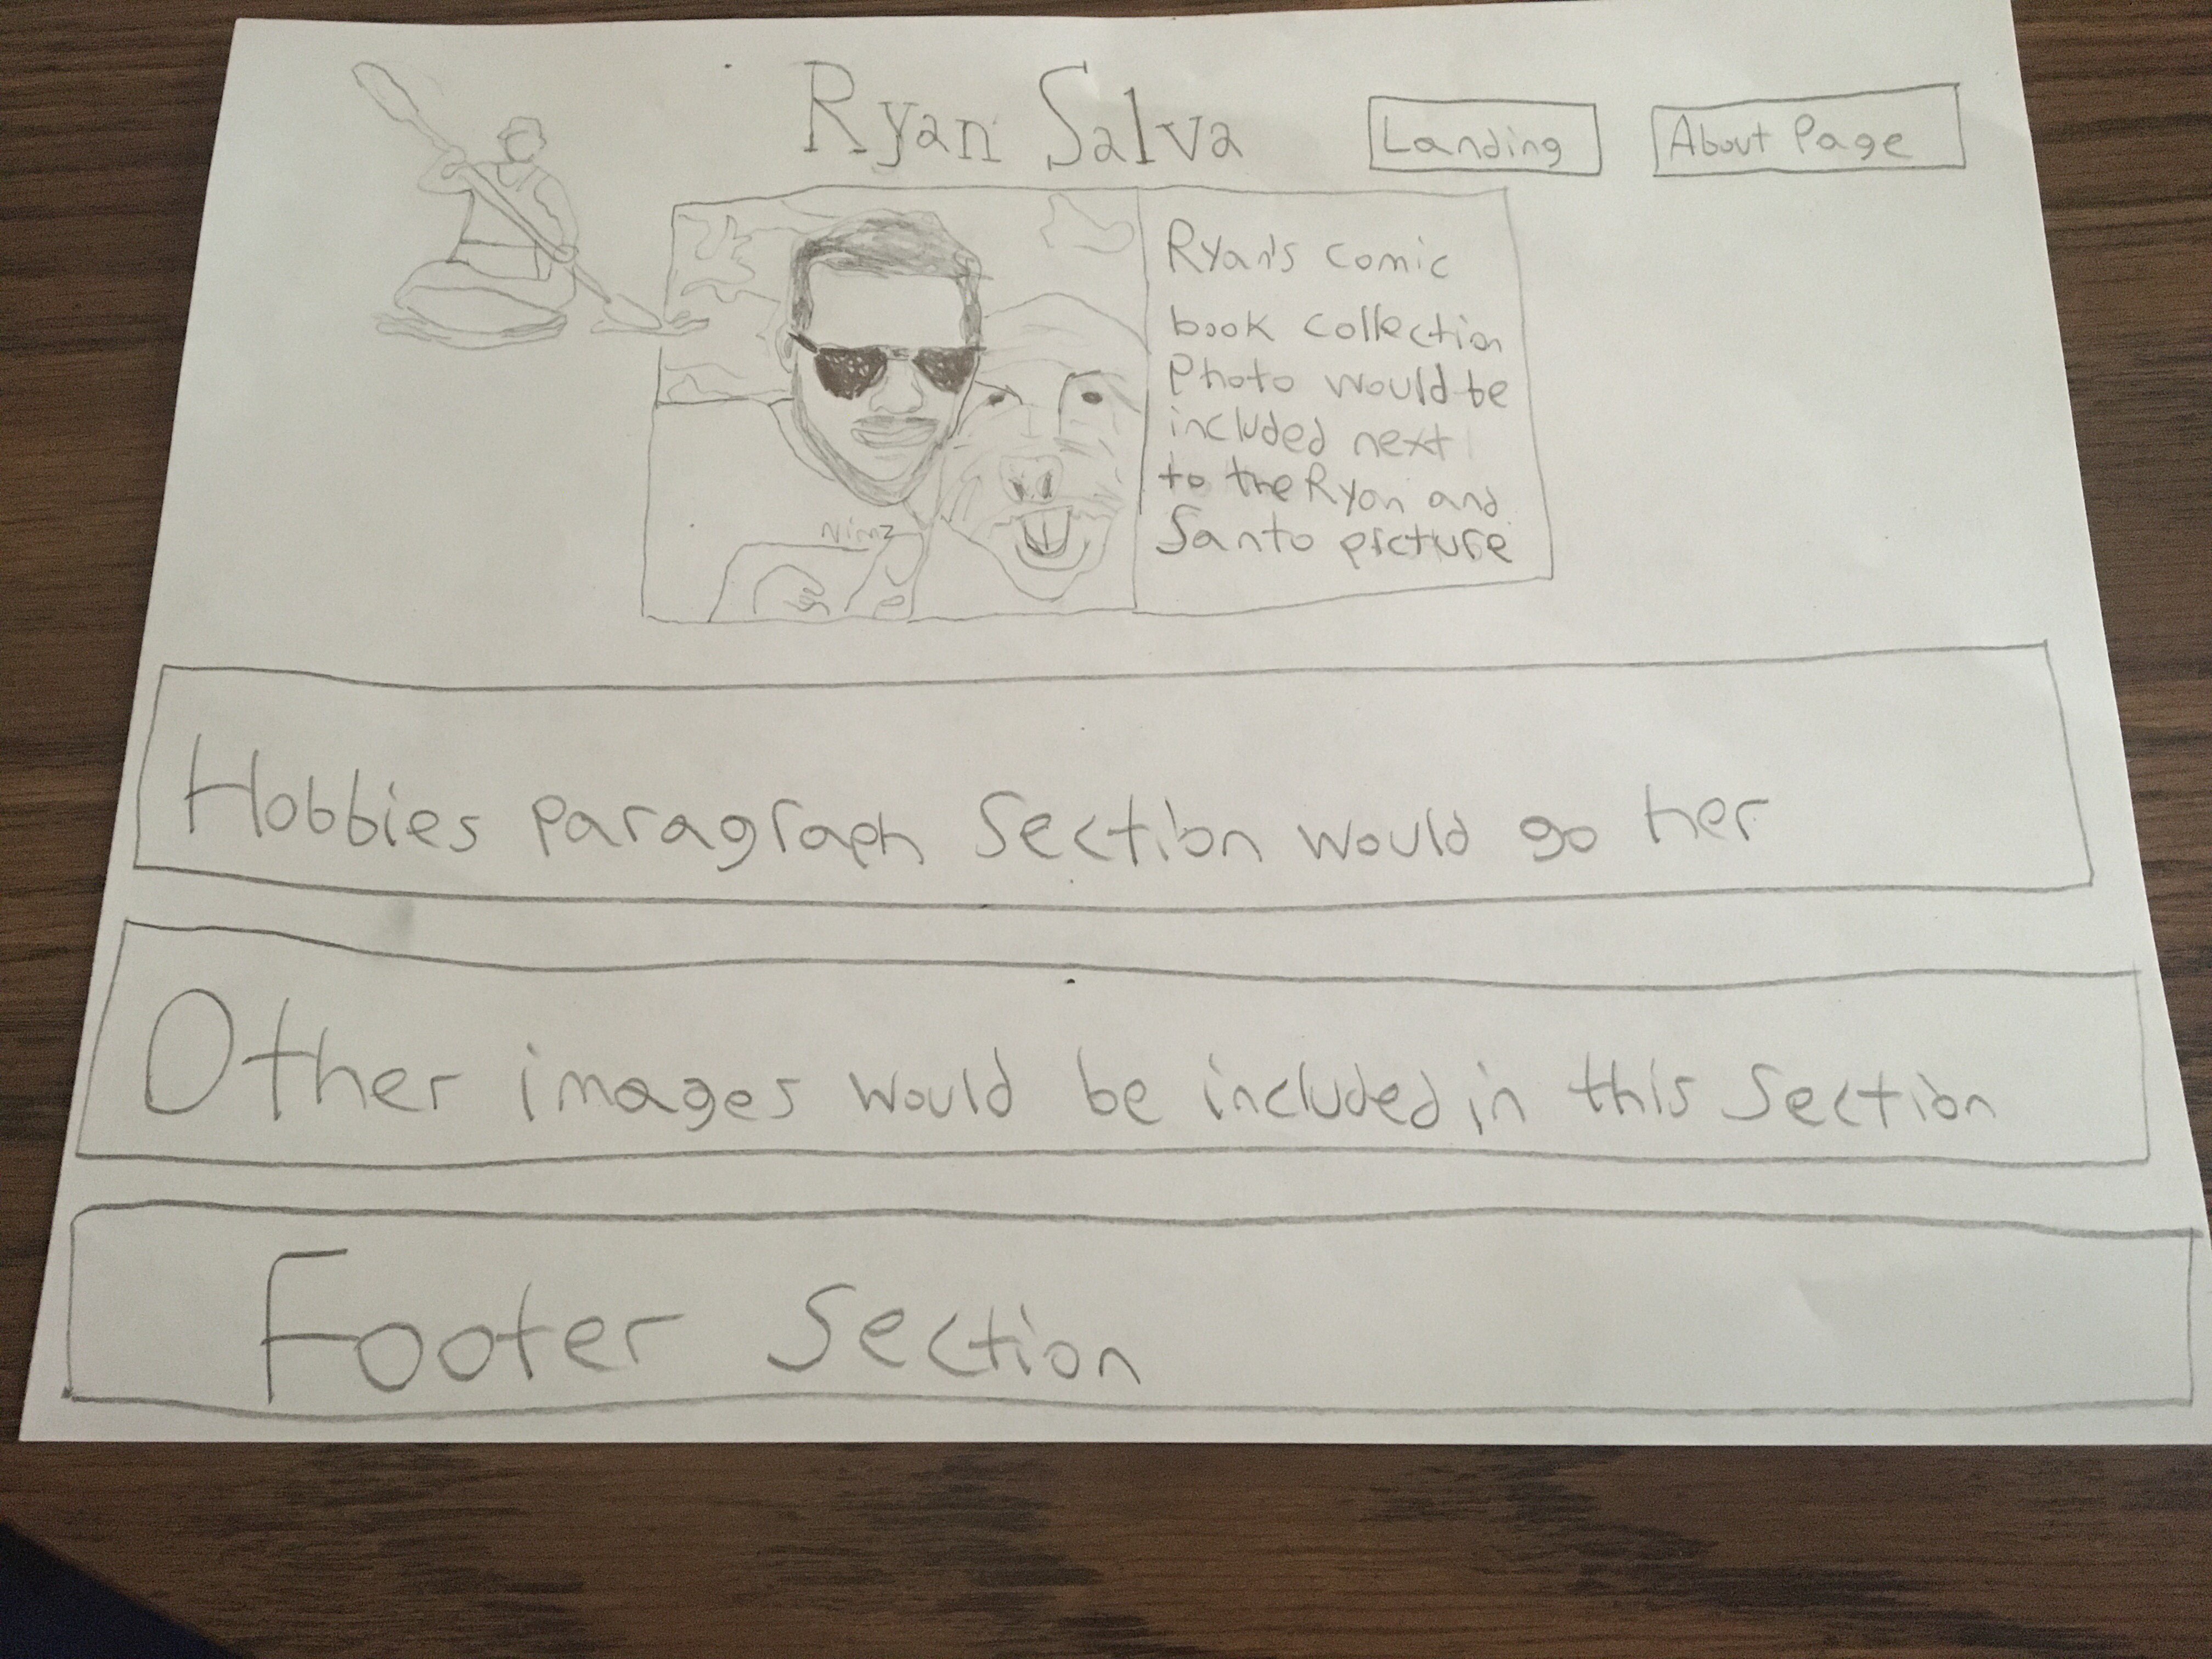 Ryan Salva
Landing
About Page
Ryan's comic
book collection
Photo would be
included next
to the Ryan and
Santo picture
Hobbies paragraph Section would go her
Other images would be included in this section
Footer Section